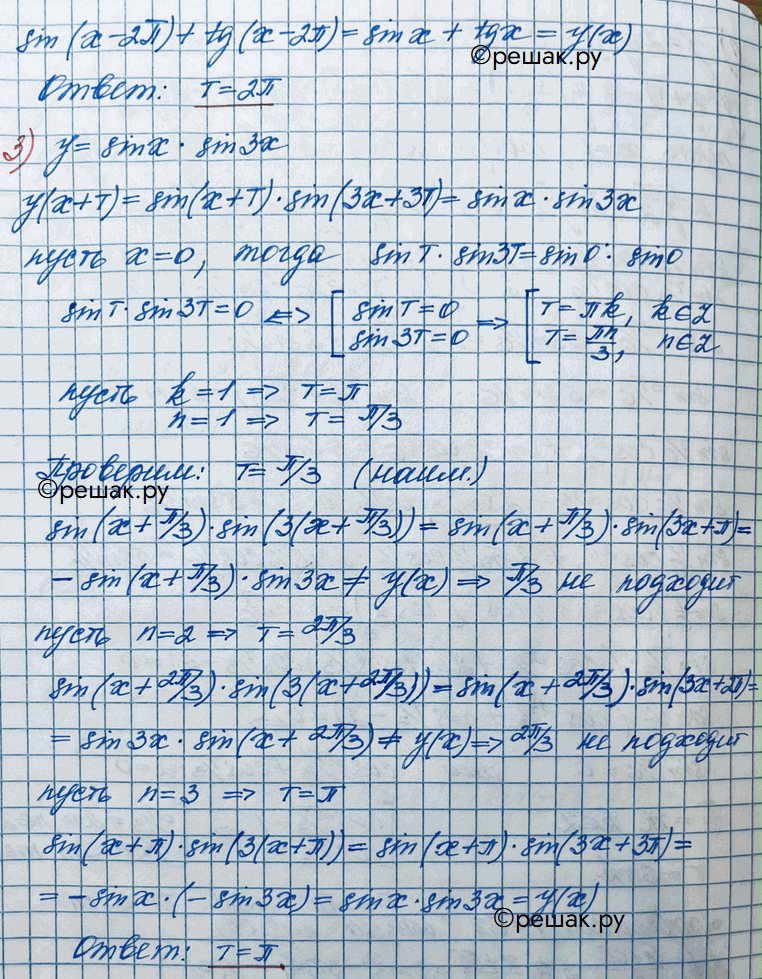 sin(x-2π)+tg(x-2π)=sin x+tg x=y(x)
©решак.ру
Ответ: T=2π
3) y=sin x · sin 3x
y(x+T)=sin(x+T)·sin(3x+3T)=sin x · sin 3x
пусть x=0, тогда sin T · sin 3T=sin 0 · sin 0
sin T · sin 3T=0 <=> [ sin T=0 => [ T=πk, k∈Z
sin 3T=0 T=πn/3, n∈Z
пусть k=1 => T=π
n=1 => T=π/3
Проверим: T=π/3 (наим.)
©решак.ру
sin(x+π/3)·sin(3(x+π/3))=sin(x+π/3)·sin(3x+π)=
-sin(x+π/3)·sin 3x≠y(x) => π/3 не подходит
пусть n=2 => T=2π/3
sin(x+2π/3)·sin(3(x+2π/3))=sin(x+2π/3)·sin(3x+2π)=
=sin 3x · sin(x+2π/3)≠y(x)=> 2π/3 не подходит
пусть n=3 => T=π
sin(x+π)·sin(3(x+π))=sin(x+π)·sin(3x+3π)=
=-sin x·(-sin 3x)=sin x·sin 3x=y(x)
©решак.ру
Ответ: T=π